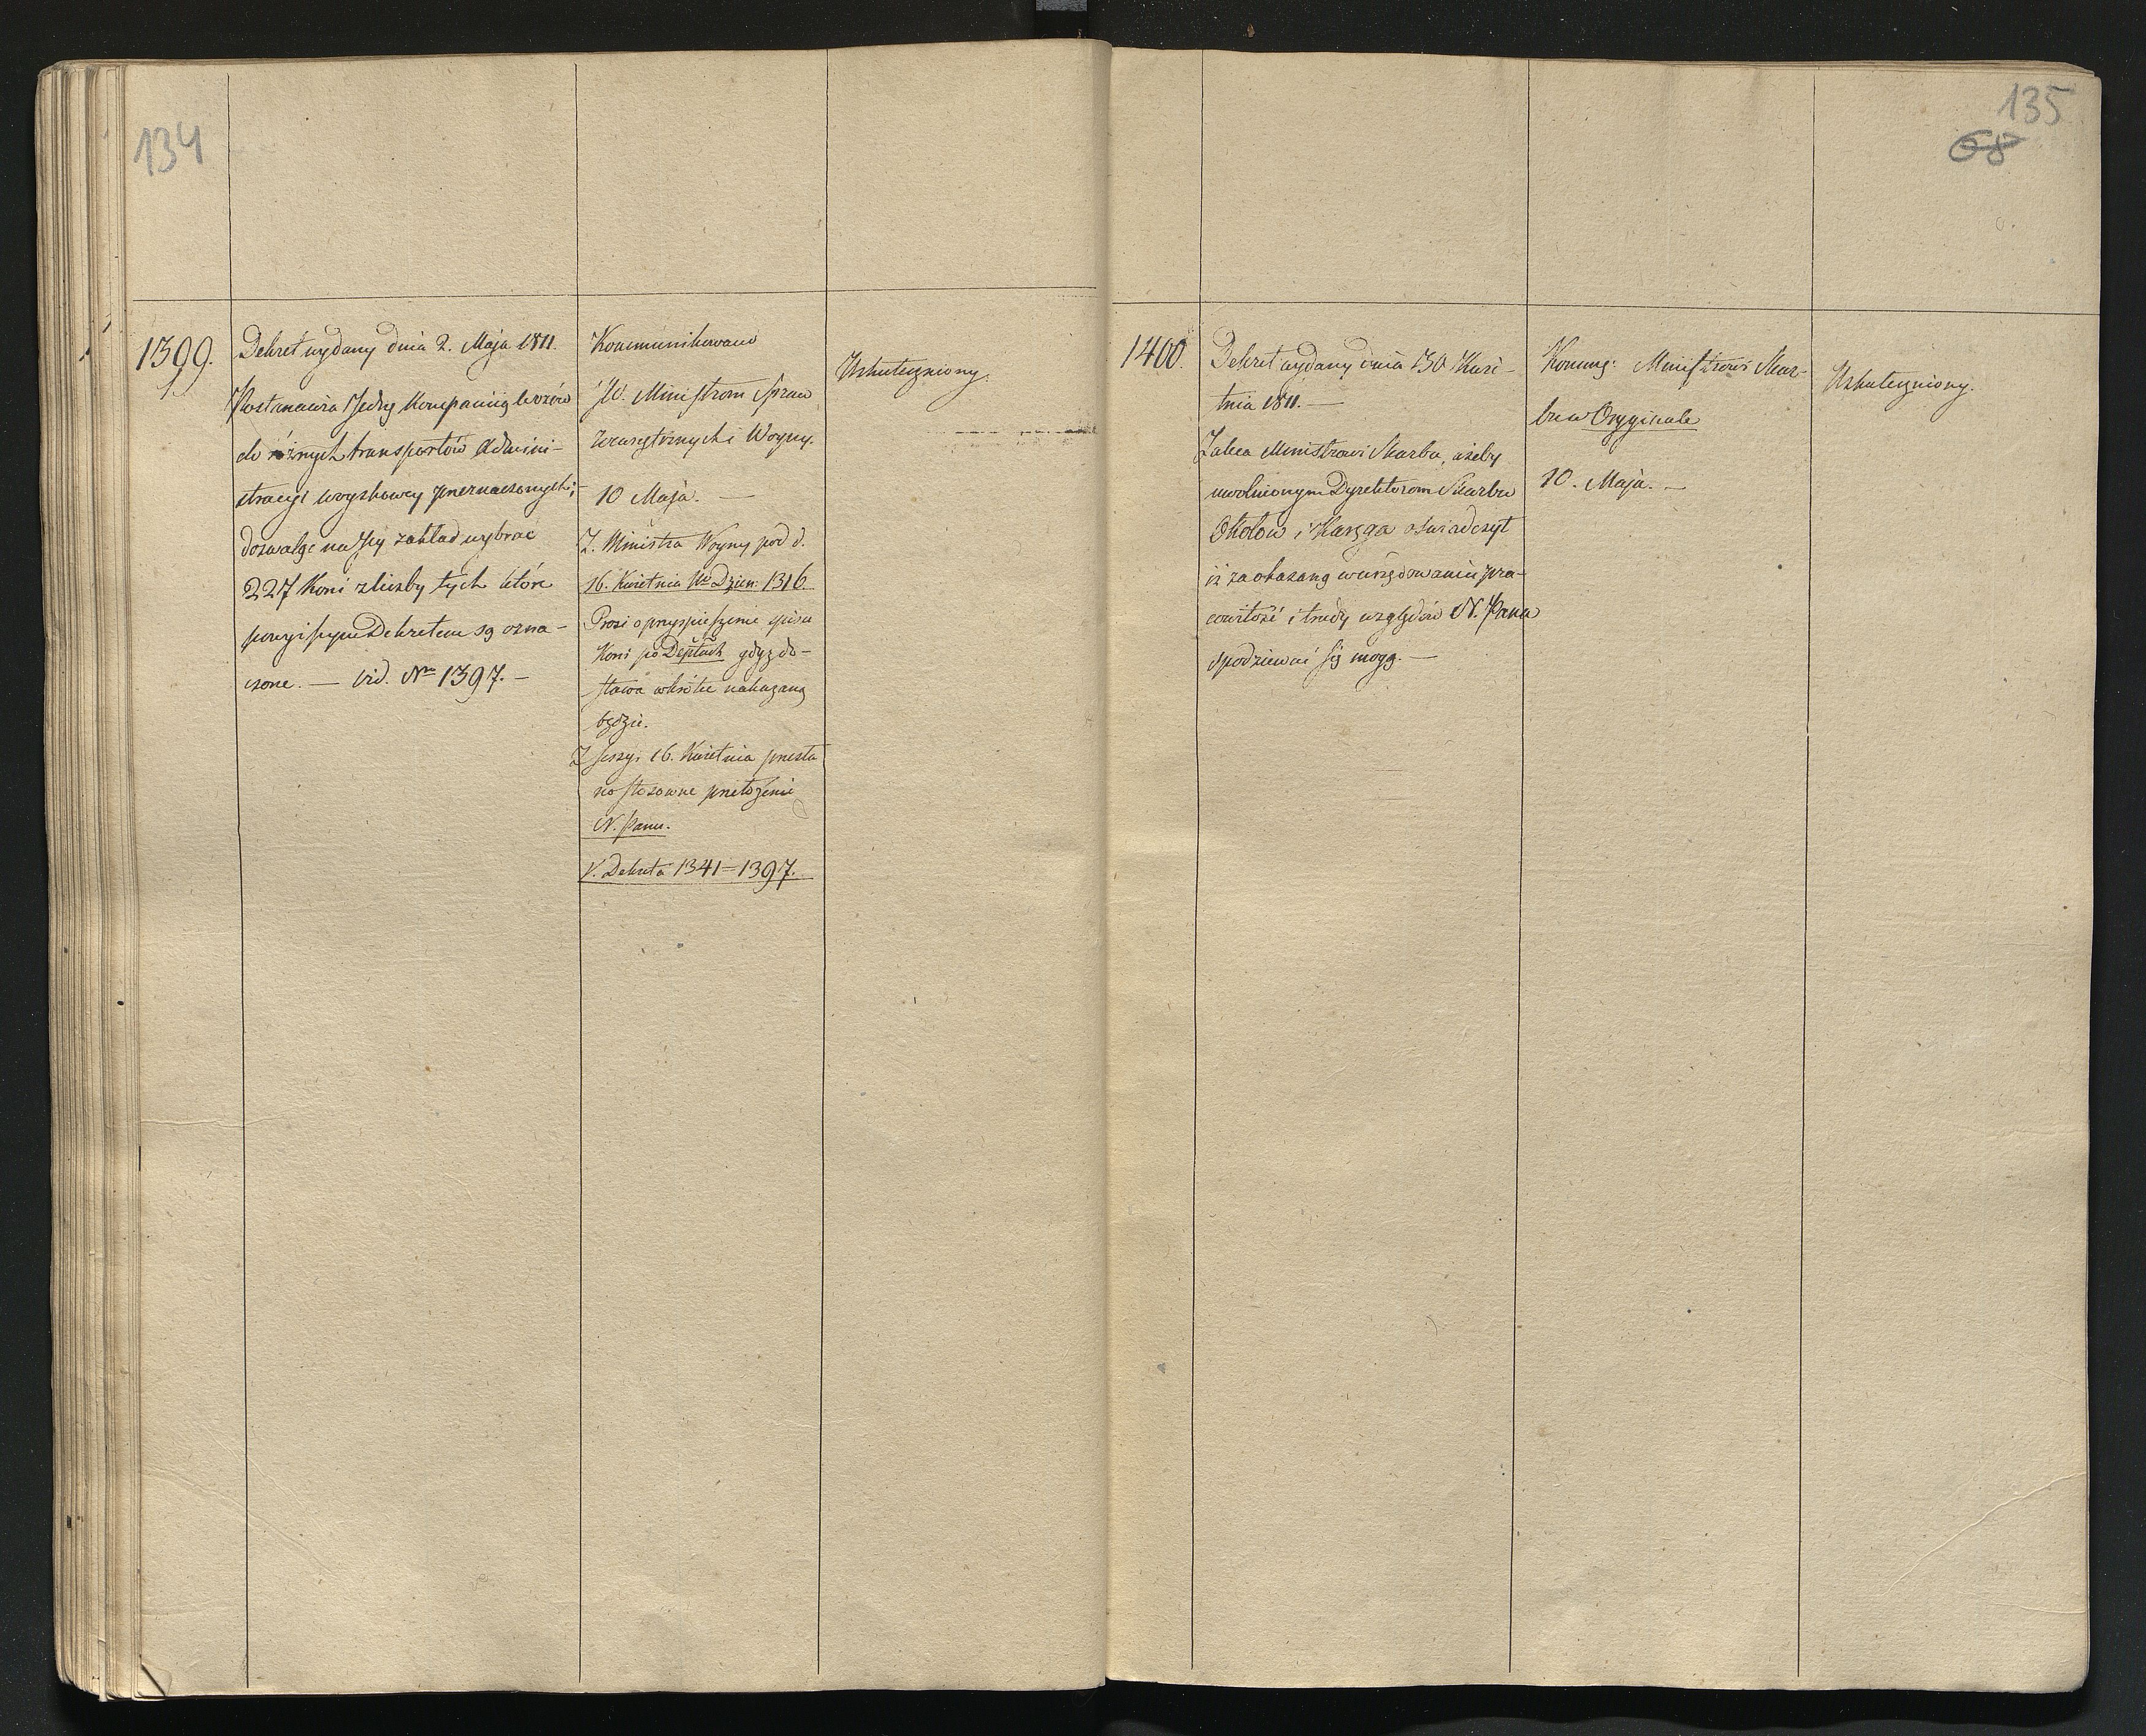 134
1399.
Dekret wydany dnia 2. Maja 1811.
Postanawia Jedną Kompaniią wozów
do różnych transportów Admini-
stracyi woyskowey przeznaczonych i
dozwala na Jey zakład wybrać
227 Koni z liczby tych które
powyższym Dekretem są ozna-
czone. — vid. Nro 1397. —
Kommunikowano
JW. Ministrom Spraw
Wewnętrznych i Woyny.
10 Maja. —
Z. Ministra Woyny pod d.
16. Kwietnia Nr Dzien: 1316.
Prosi o przyspieszenie spisu
Koni po Deptach gdyż do-
stawa wkrótce nakazaną
będzie.
Z Sessyi 16. Kwietnia przesła
no stosowne przełożenie
N. Panu.
V. Dekreta 1341 — 1397.
Uskuteczniony.
135
68
1400.
Dekret wydany dnia 30 Kwie-
tnia 1811. —
Zaleca Ministrowi Skarbu, ażeby
uwolnionym Dyrektorom Skarbu
Okołow i Karęga oświadczył
iż za okazaną w urzędowaniu pra-
cowitość i trudy względów N. Pana
spodziewać się mogą. —
Kommg: Ministrowi Skar-
bu w Oryginale
10. Maja. —
Uskuteczniony.